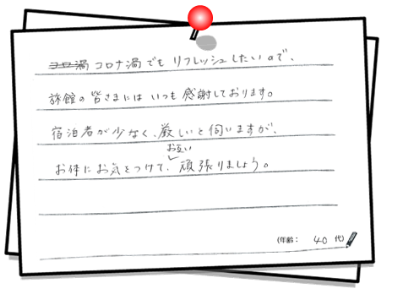 コロナ渦でもリフレッシュしたいので、
旅館の皆さまにはいつも感謝しております。
宿泊者が少なく、厳しいと伺いますが、
お体にお気をつけて、お互い頑張りましょう。
(年齢: 40 代)